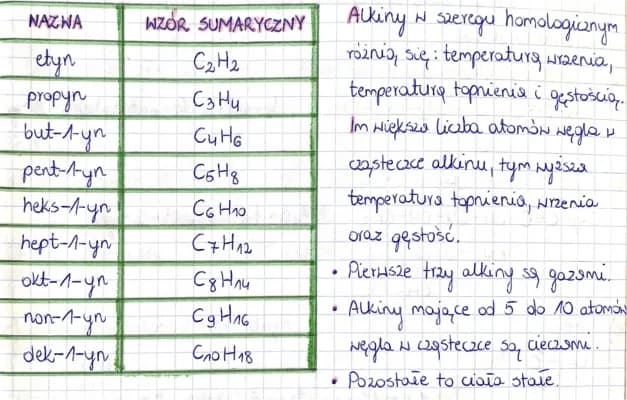 NAZWA WZÓR SUMARYCZNY
etyn C₂H₂
propyn C₃H₄
but-1-yn C₄H₆
pent-1-yn C₅H₈
heks-1-yn C₆H₁₀
hept-1-yn C₇H₁₂
okt-1-yn C₈H₁₄
non-1-yn C₉H₁₆
dek-1-yn C₁₀H₁₈
Alkiny w szeregu homologicznym
różnią się: temperaturą wrzenia,
temperaturą topnienia i gęstością.
Im większa liczba atomów węgla w
cząsteczce alkinu, tym wyższa
temperatura topnienia, wrzenia
oraz gęstość.
• Pierwsze trzy alkiny są gazami.
• Alkiny mające od 5 do 10 atomów
węgla w cząsteczce są cieczami.
• Pozostałe to ciała stałe.